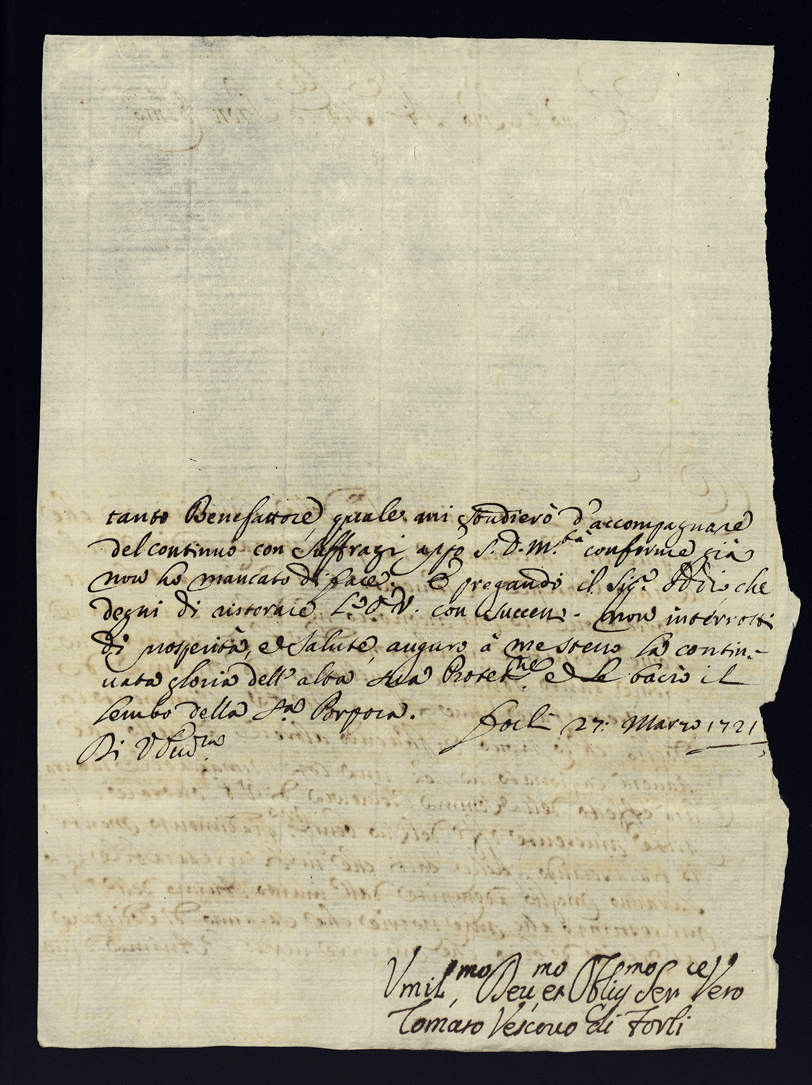 tanto Benefattore quale mi studierò d'accompagnare
del continuo con suffragi app̃o S. D. M.tà conforme già
non ho mancato di fare. E pregando il Sig.r Iddio che
degni di ristorare L'E.V. con successi non interrotti
di prosperità, e salute, auguro à me stesso la contin-
uata gloria dell'alta sua Protet.ne e le bacio il
lembo della S.a Porpora. Forlì 27: Marzo 1721
Di V
Umil.mo Dev.mo et Oblig.mo Ser.ce Vero
Tomaso Vescovo di Forlì